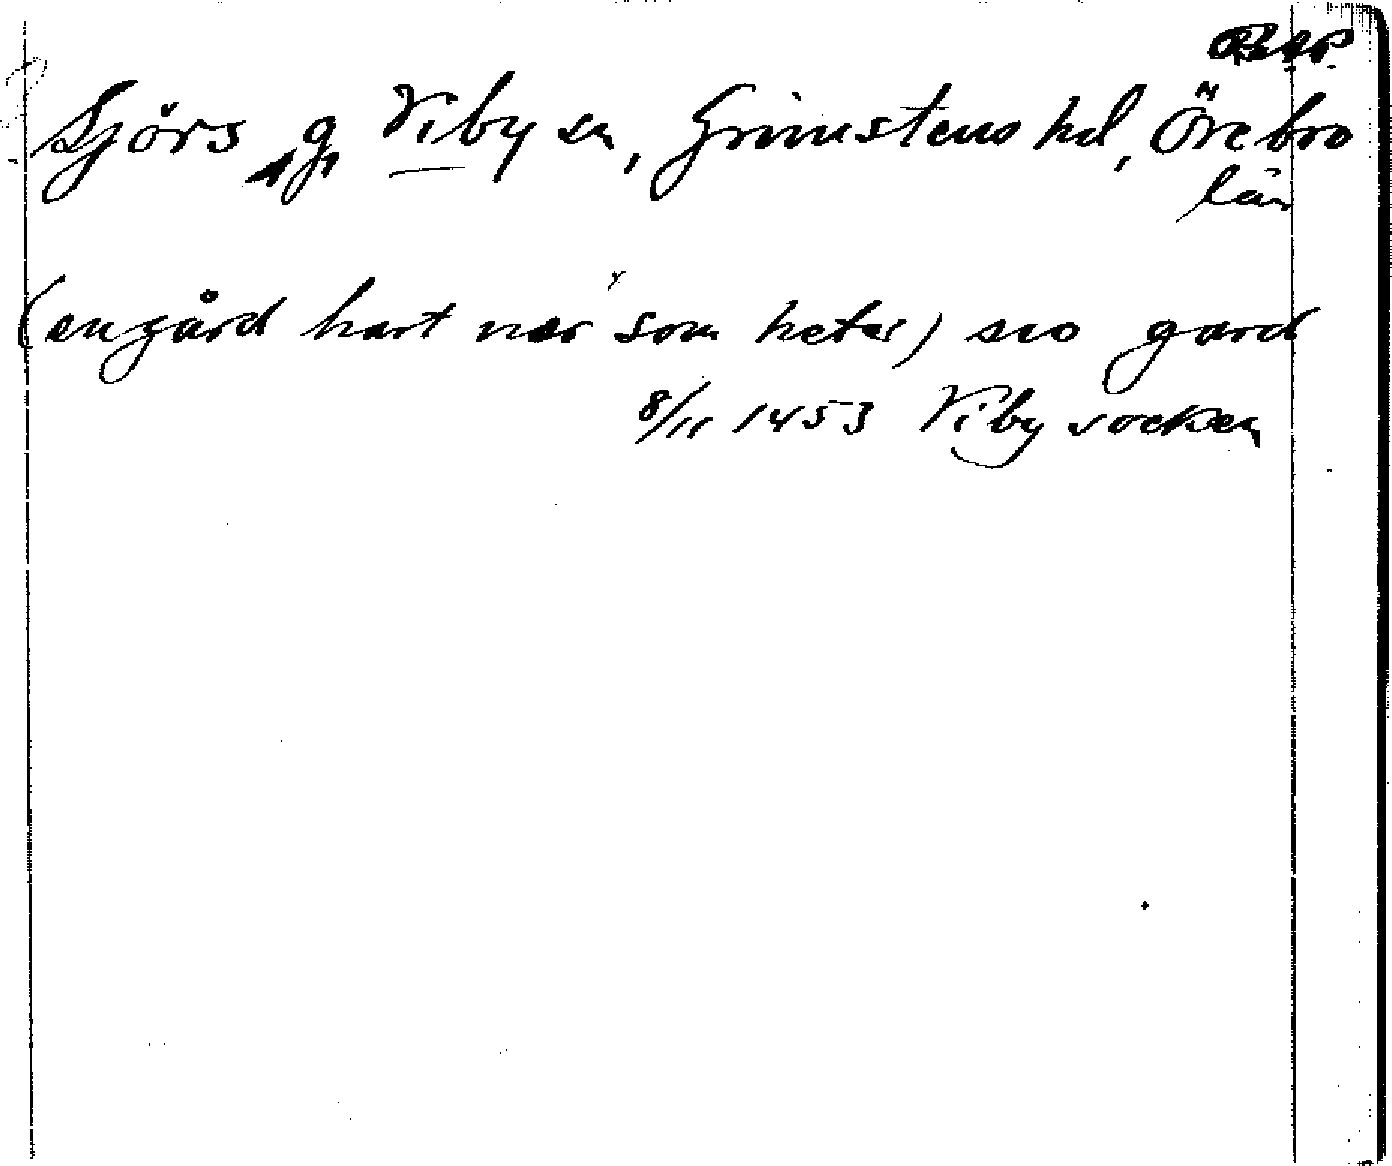 Sjörs g, Viby sn, Grimstens hd, Örebro
län
(en gård hart nær som heter) sio gard
8/11 1453 Viby socken